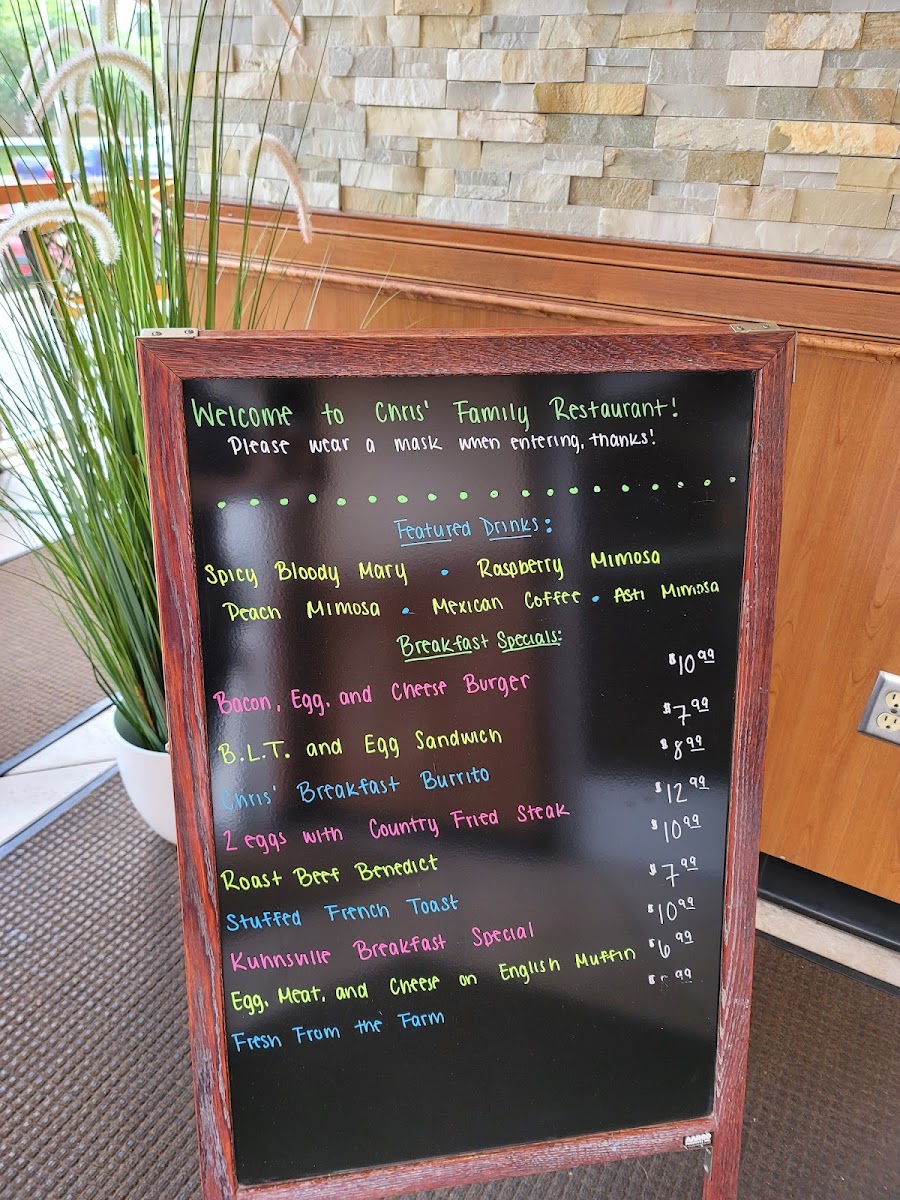 Welcome to Chris' Family Restaurant!
Please wear a mask when entering, thanks!
Featured Drinks:
Spicy Bloody Mary • Raspberry Mimosa
Peach Mimosa • Mexican Coffee • Asti Mimosa
Breakfast Specials:
Bacon, Egg, and Cheese Burger $10.99
B.L.T. and Egg Sandwich $7.99
Chris' Breakfast Burrito $8.99
2 eggs with Country Fried Steak $12.99
Roast Beef Benedict $10.99
Stuffed French Toast $7.99
Kuhnsville Breakfast Special $10.99
Egg, Meat, and Cheese on English Muffin $6.99
Fresh From the Farm